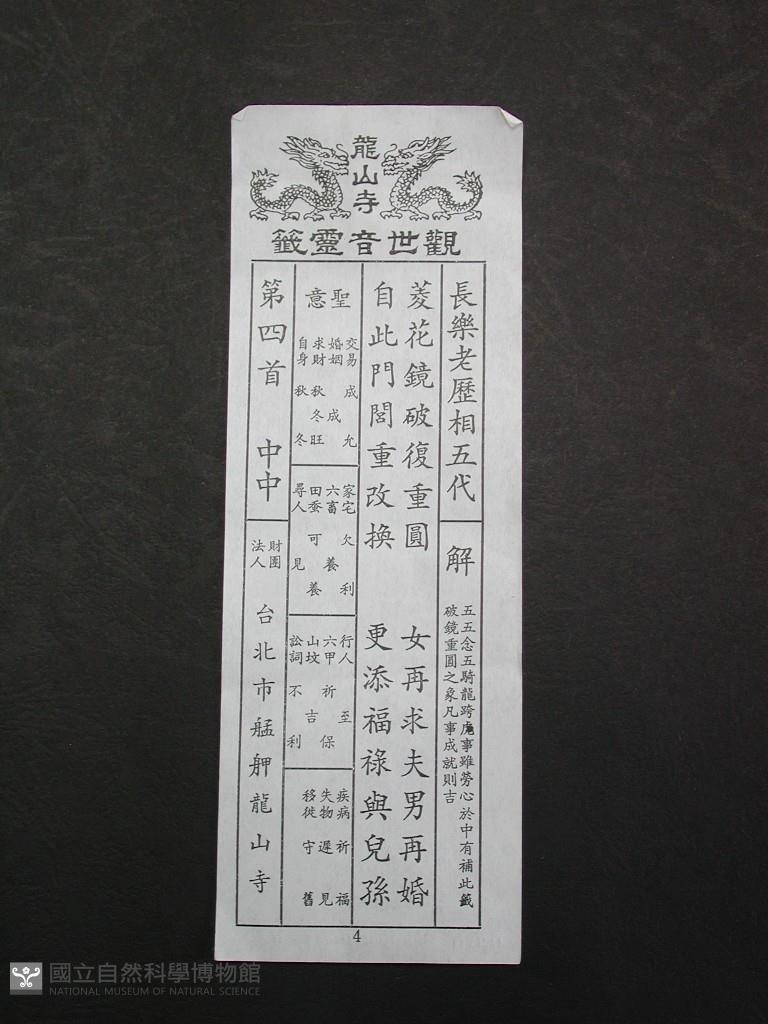 龍山寺
觀世音靈籤
長樂老歷相五代
解
五五念五騎龍跨虎事雖勞心於中有補此籤
破鏡重圓之象凡事成就則吉
菱花鏡破復重圓 女再求夫男再婚
自此門閭重改換 更添福祿與兒孫
聖意
交易 成 允
婚姻 成
求財 秋 冬 旺
自身 秋 冬
家宅 欠 利
六畜 養
田蚕 可 養
尋人 見
行人 至
六甲 祈 保
山坟 吉
訟詞 不 利
疾病 祈 福
失物 遲 見
移徙 守 舊
第四首 中中
財團法人
台北市艋舺龍山寺
4
國立自然科學博物館
NATIONAL MUSEUM OF NATURAL SCIENCE